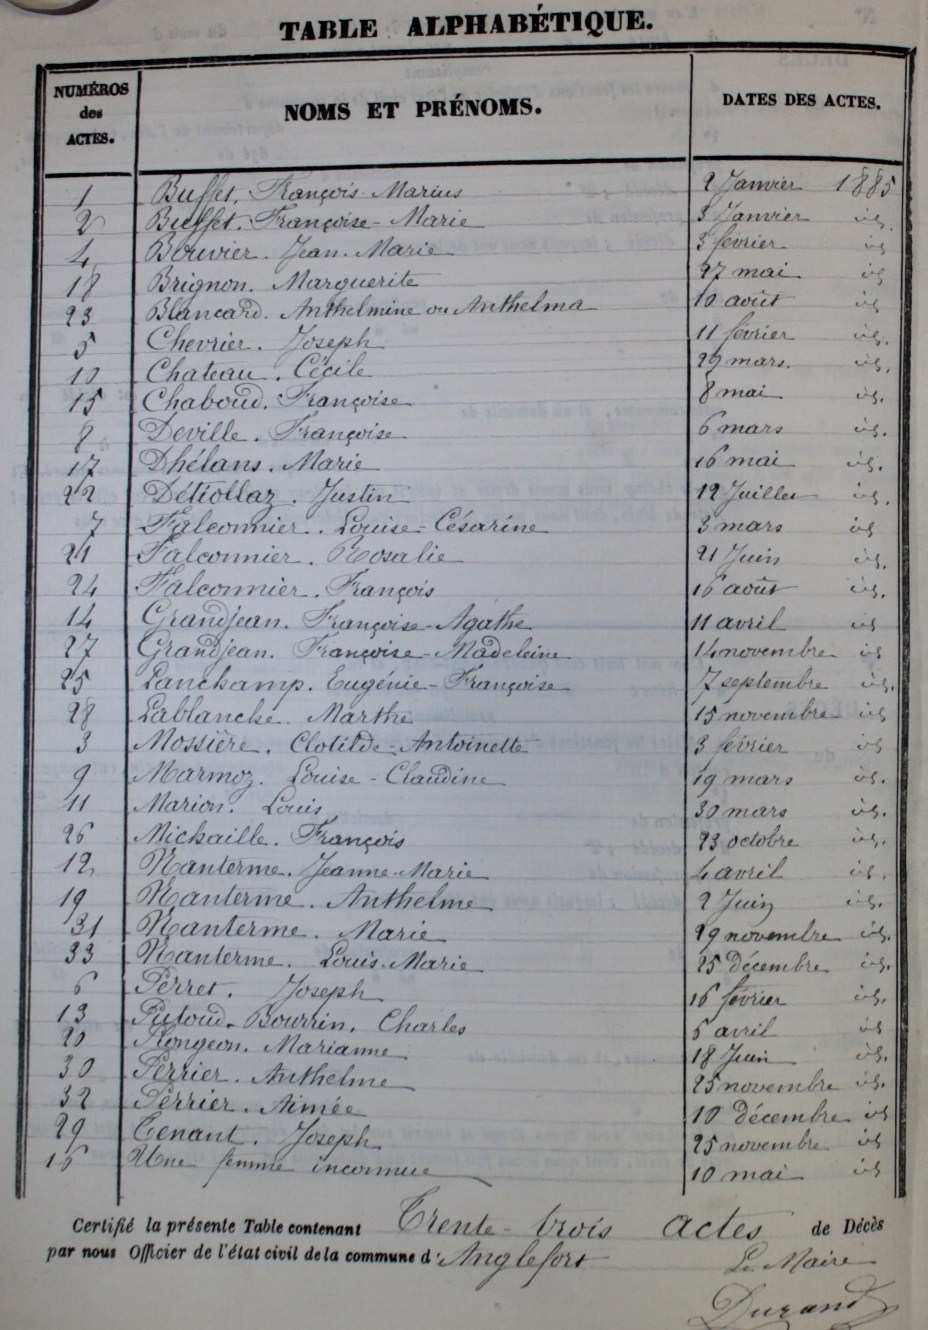 TABLE ALPHABÉTIQUE.
NUMÉROS des ACTES. NOMS ET PRÉNOMS. DATES DES ACTES.
1 Buffet, François Marius 2 Janvier 1885
2 Buffet. Françoise-Marie 3 Janvier id.
4 Bouvier. Jean-Marie 3 février id
18 Brignon. Marguerite 27 mai id
23 Blancard. Anthelmine ou Anthelma 10 août id
5 Chevrier. Joseph 11 février id.
10 Chateau. Cécile 29 mars. id.
15 Chaboud. Françoise 8 mai id.
8 Deville. Françoise 6 mars id.
17 Dhélans. Marie 16 mai id.
22 Détiollaz. Justin 12 Juillet id.
7 Falconnier. Louise-Césarine 3 mars id
21 Falconnier. Rosalie 21 Juin id.
24 Falconnier. François 16 août id.
14 Grandjean. Françoise-Agathe 11 avril id
27 Grandjean. Françoise-Madeleine 14 novembre id
25 Lanckamp. Eugénie-Françoise 7 septembre id.
28 Lablanche. Marthe 15 novembre id
3 Mossière. Clotilde-Antoinette 3 février id
9 Marmoz. Louise-Claudine 19 mars id.
11 Marion. Louis 30 mars id.
26 Mickaille. François 23 octobre id.
12 Nanterme. Jeanne-Marie 4 avril id.
19 Nanterme. Anthelme 2 Juin id.
31 Nanterme. Marie 29 novembre id.
33 Nanterme. Louis-Marie 25 décembre id.
6 Perret. Joseph 16 février id.
13 Putoud-Bourrin. Charles 5 avril id
20 Pongeon. Marianne 18 Juin id.
30 Perrier. Anthelme 25 novembre id.
32 Perrier. Aimée 10 décembre id
29 Tenant. Joseph 25 novembre id
16 Une femme inconnue 10 mai id
Certifié la présente Table contenant Trente-trois actes de Décès
par nous Officier de l'état civil de la commune d'Anglefort
Le Maire
Durand